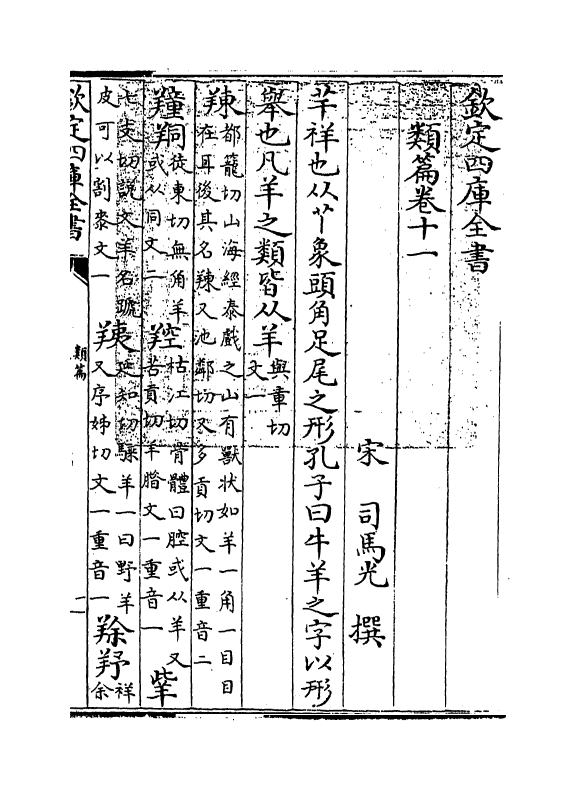 欽定四庫全書
類篇卷十一
宋 司馬光 撰
羊祥也从𦫳象頭角足尾之形孔子曰牛羊之字以形
舉也凡羊之類皆从羊與章切文一
䍶都籠切山海經泰戲之山有獸状如羊一角一目目在耳後其名䍶又池鄰切又多貢切文一重音二
羵徒東切無角羊或从同文二 羫枯江切骨體曰腔或从羊又苦貢切羊腊文一重音一 羍
七支切說文羊名蹏皮可以割桼文一 羠延知切騬羊一曰野羊又序姊切文一重音一 䍱𦍎祥余
欽定四庫全書
類篇
二